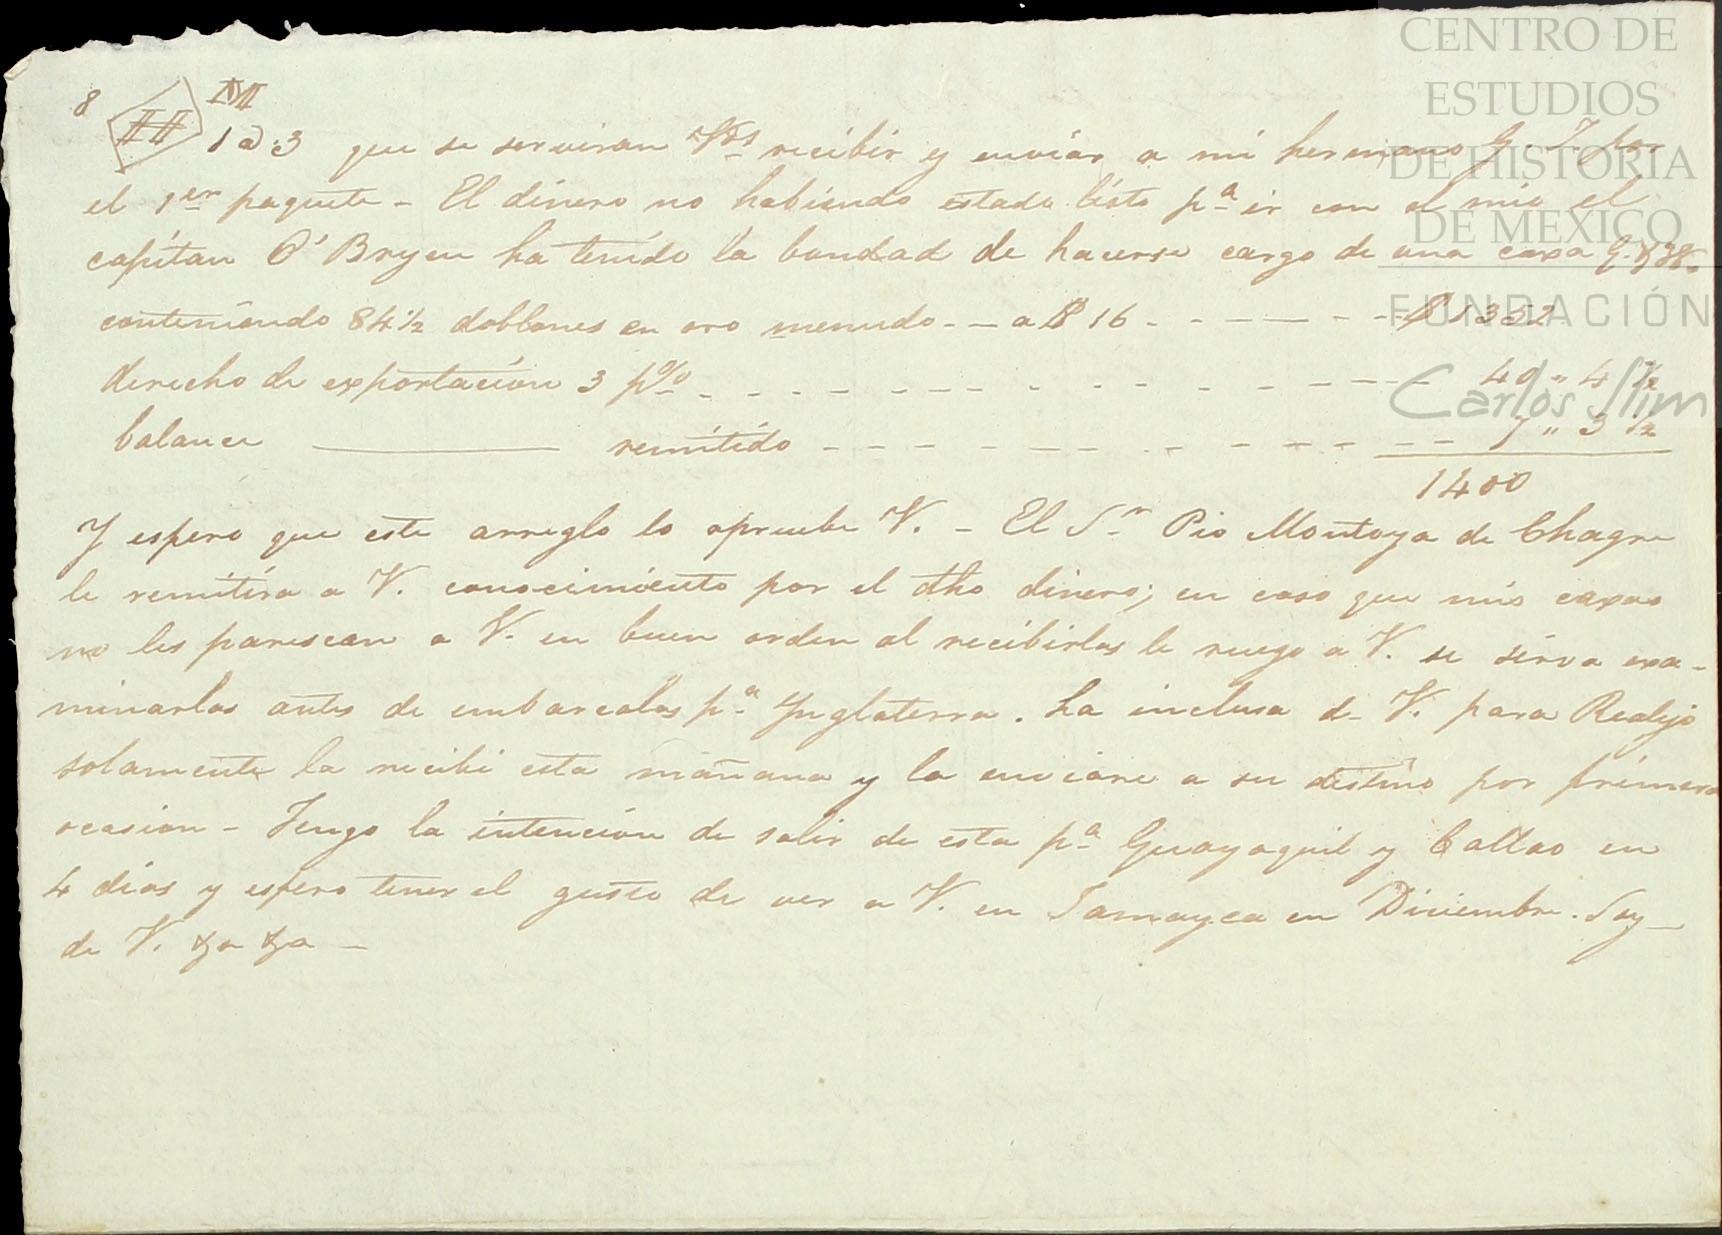 CENTRO DE
ESTUDIOS
DE HISTORIA
DE MEXICO
FUNDACIÓN
Carlos Slim
8 HH M
1 a 3 que se serviran Vds recibir y enviar a mi hermano G. por
el 1er paquete - El dinero no habiendo estado listo pa ir con el mio el
capitan O'Bryen ha tenido la bondad de hacerse cargo de una caxa G.
conteniendo 84 1/2 doblones en oro menudo - - a $ 16 - - - - - - $ 1352
derecho de exportacion 3 p% - - - - - - - - - - - 40 " 4 1/2
balance ——— remitido - - - - - - - - - - - 7 " 3 1/2
1400
Y espero que este arreglo lo apruebe V. - El Sr Pio Montoya de Chagre
le remitira a V. conocimiento por el dho dinero; en caso que mis caxas
no les parescan a V. en buen orden al recibirlas le ruego a V. se sirva exa-
minarlas antes de embarcalas pa Ynglaterra. La inclusa de V. para Realejo
solamente la recibi esta mañana y la enviare a su destino por primera
ocasion - Tengo la intencion de salir de esta pa Guayaquil y Callao en
4 dias y espero tener el gusto de ver a V. en Jamayca en Diciembre. Soy -
de V. &a &a -